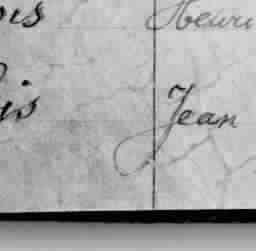 ois Henri
is Jean